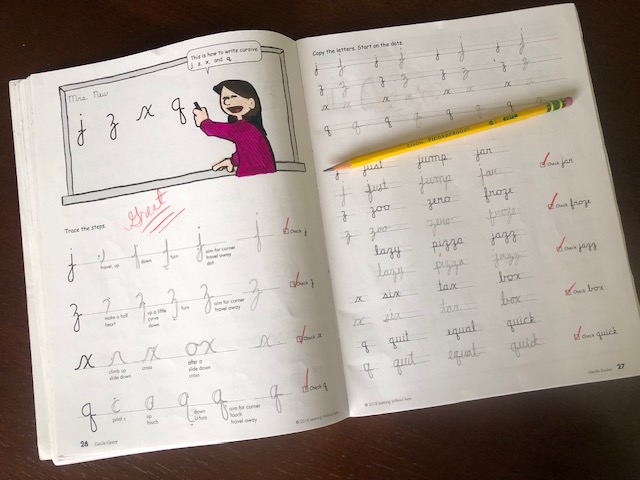 This is how to write cursive
j, z, x, and q.
Mrs. New
j z x q
Great
Trace the steps.
j j j j j j ☑ Check j
travel up down turn aim for corner
travel away
dot
z z z z z z ☑ Check z
make a tall
heart up a little
curve
down turn aim for corner
travel away
x x x ox x ☑ Check x
climb up
slide down cross after o
slide down
cross
q c o q q q ☑ Check q
print c up
touch down
U-turn aim for corner
touch
travel away
26 Can-Do Cursive
© 2018 Learning Without Tears
Copy the letters. Start on the dots.
j j j j j j
z z z z z z
x x x x x x
q q q q q q
j just jump jar
j just jump jar ☑ Check jar
z zoo zero froze
z zoo zero froze ☑ Check froze
lazy pizza jazz
lazy pizza jazz ☑ Check jazz
x six tax box
x six tax box ☑ Check box
q quit equal quick
q quit equal quick ☑ Check quick
© 2018 Learning Without Tears
Can-Do Cursive 27